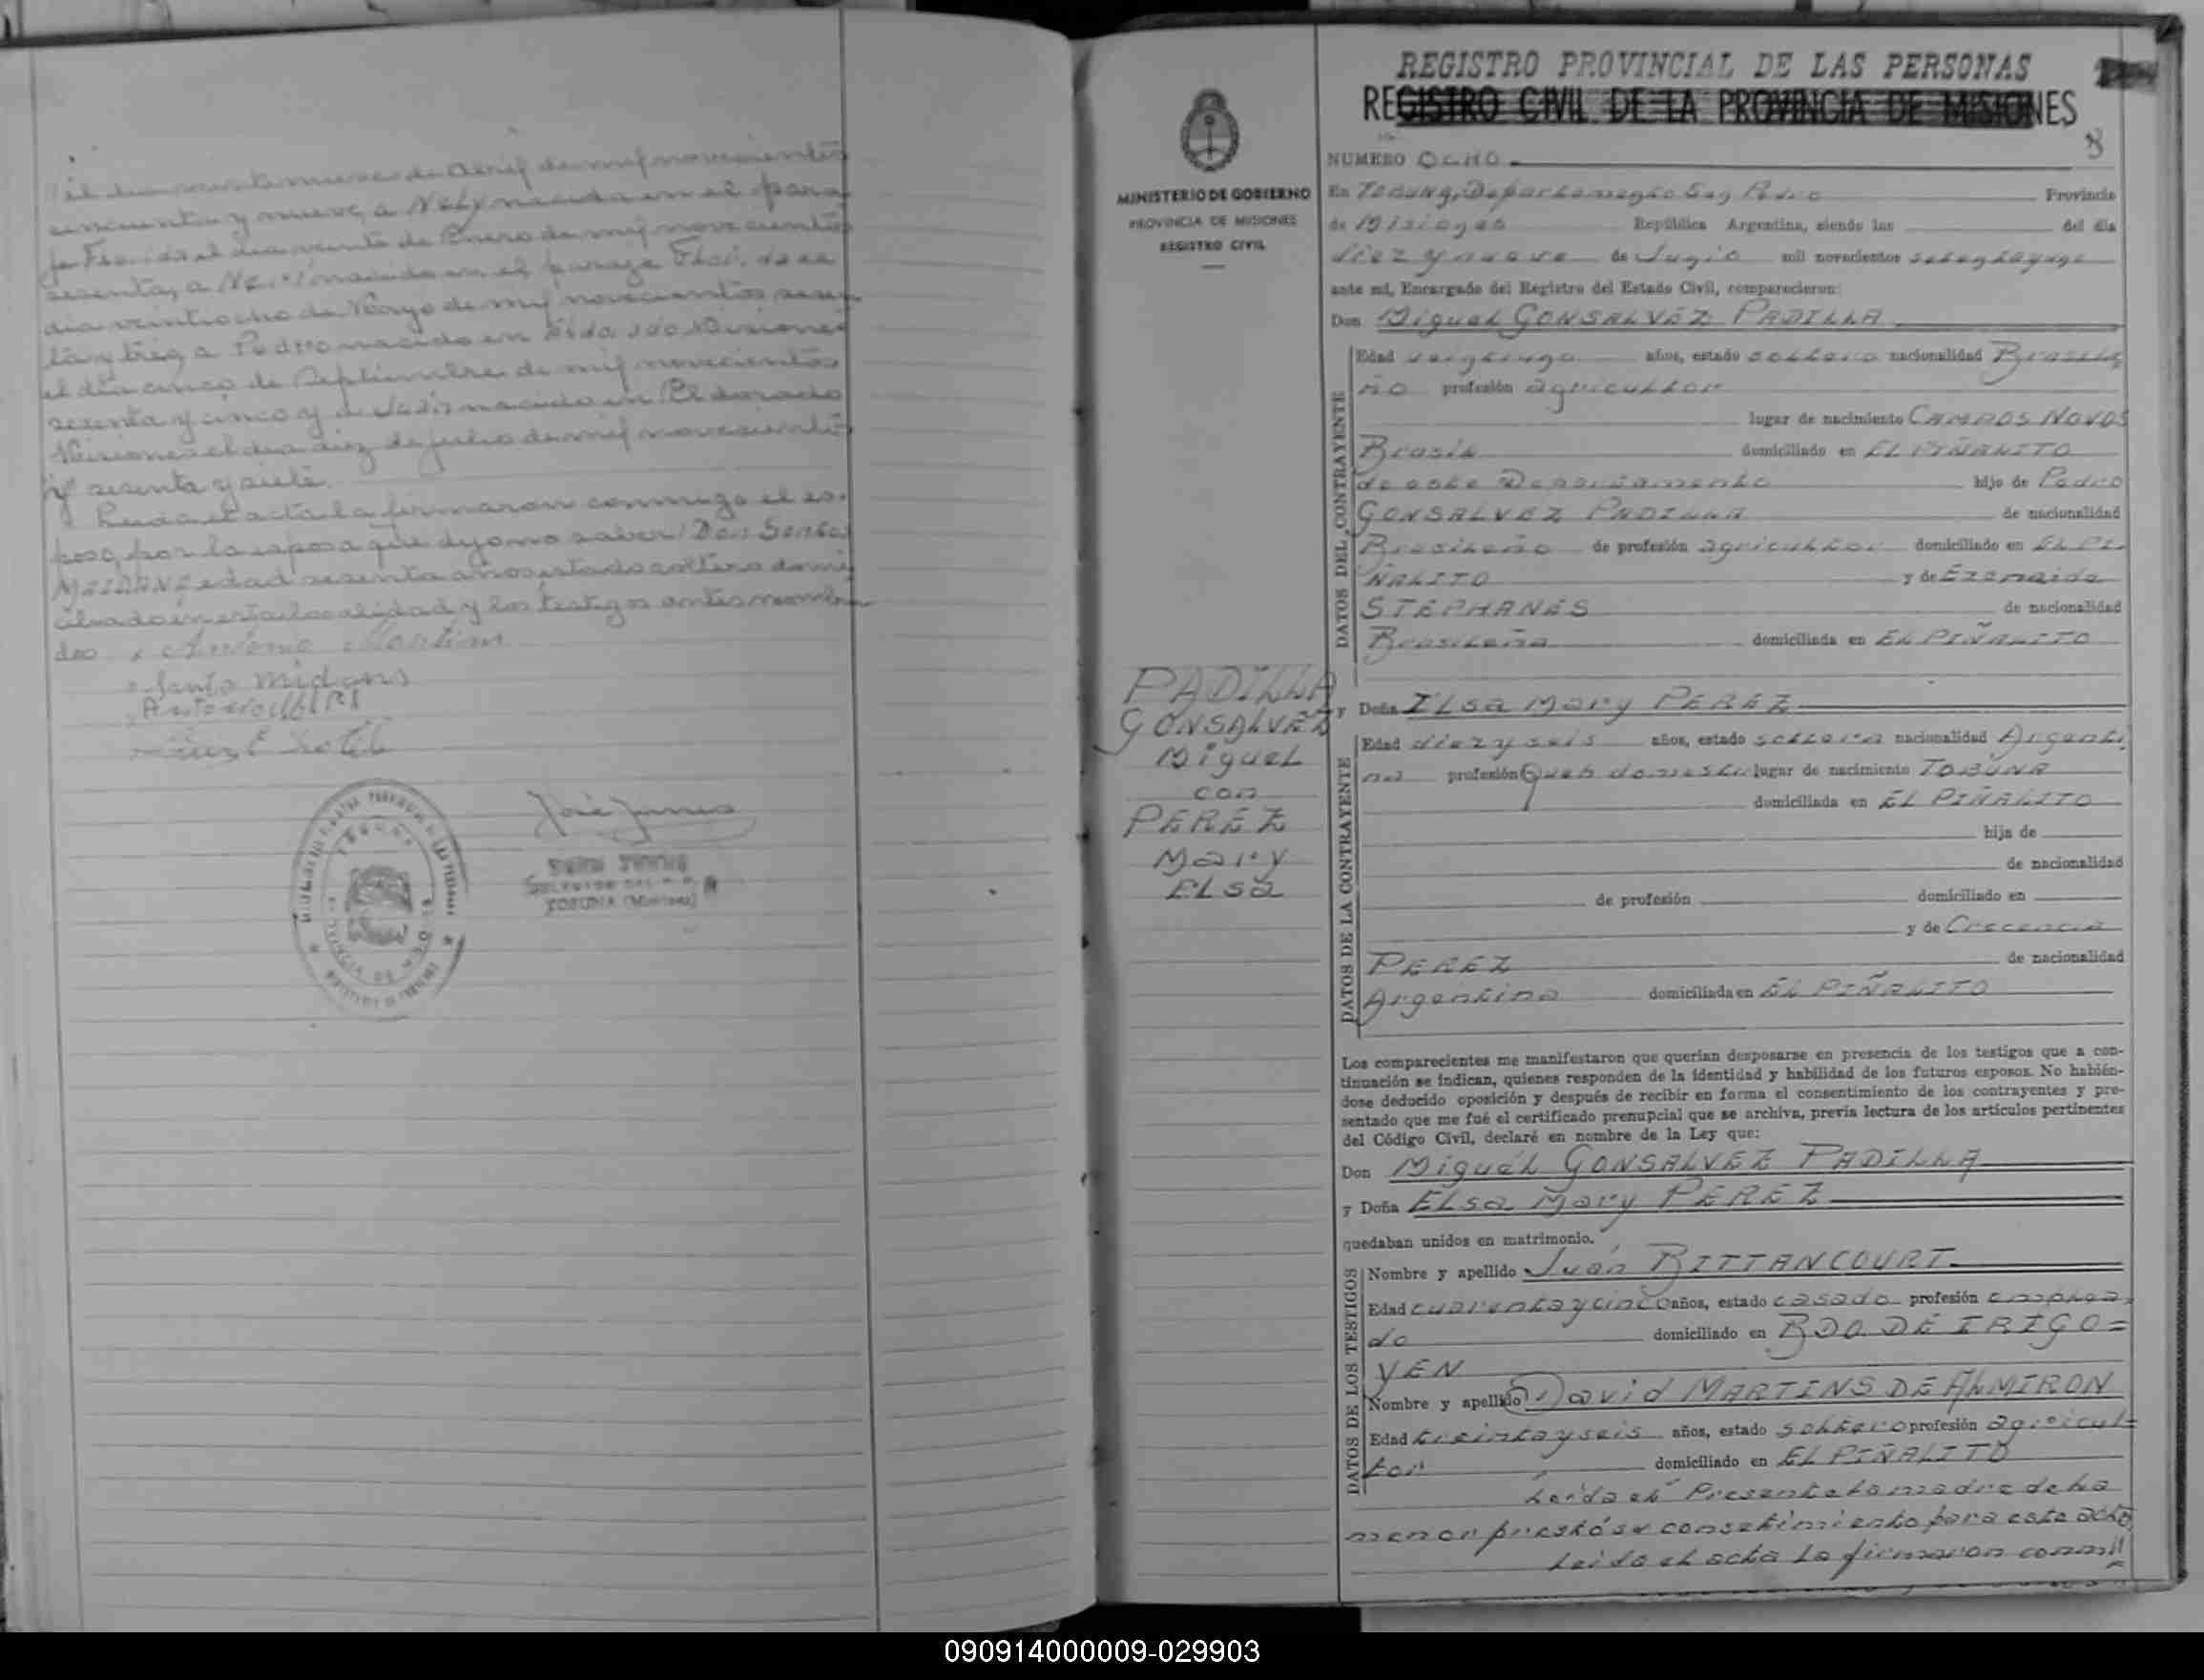 el dia veintinueve de Abril de mil novecientos
cincuenta y nueve, a Nely nacida en el para
je Florida el dia veinte de Enero de mil novecientos
sesenta, a nacido en el paraje Florida el
dia veintiocho de Mayo de mil novecientos sesen
ta y tres, a Pedro nacido en Eldorado Misiones
el dia cinco de Septiembre de mil novecientos
sesenta y cinco y a nacido en Eldorado
Misiones el dia diez de julio de mil novecientos
sesenta y siete.
Leida el acta la firmaron conmigo el es-
poso, por la esposa que dijo no saber Don Santos
edad sesenta años estado soltero domi
ciliado en esta localidad y los testigos antes nombra
dos Antonio Martins
Santo
Antonio
José
TOBUNA (Misiones)
MINISTERIO DE GOBIERNO
PROVINCIA DE MISIONES
REGISTRO CIVIL
PADILLA
GONSALVEZ
Miguel
con
PEREZ
Mary
ELsa
REGISTRO PROVINCIAL DE LAS PERSONAS
REGISTRO CIVIL DE LA PROVINCIA DE MISIONES
8
NUMERO OCHO
En TOBUNA, Departamento San Pedro Provincia
de Misiones República Argentina, siendo las del dia
diez y nueve de Junio mil novecientos setenta y uno
ante mí, Encargado del Registro del Estado Civil, comparecieron:
Don Miguel GONSALVEZ PADILLA
DATOS DEL CONTRAYENTE
Edad veintiuno años, estado soltero nacionalidad Brasile
ño profesión agricultor
lugar de nacimiento CAMPOS NOVOS
Brasil domiciliado en EL PIÑALITO
de este Departamento hijo de Pedro
GONSALVEZ PADILLA de nacionalidad
Brasileño de profesión agricultor domiciliado en EL PI
ÑALITO y de
STEPHANES de nacionalidad
Brasileña domiciliada en EL PIÑALITO
y Doña ELsa Mary PEREZ
DATOS DE LA CONTRAYENTE
Edad diez y seis años, estado soltera nacionalidad Argenti
na profesión Queh domest. lugar de nacimiento TOBUNA
domiciliada en EL PIÑALITO
hija de
de nacionalidad
de profesión domiciliado en
y de Crecencia
PEREZ de nacionalidad
Argentina domiciliada en EL PIÑALITO
Los comparecientes me manifestaron que querían desposarse en presencia de los testigos que a con-
tinuación se indican, quienes responden de la identidad y habilidad de los futuros esposos. No habién-
dose deducido oposición y después de recibir en forma el consentimiento de los contrayentes y pre-
sentado que me fué el certificado prenupcial que se archiva, previa lectura de los artículos pertinentes
del Código Civil, declaré en nombre de la Ley que:
Don Miguel GONSALVEZ PADILLA
y Doña ELsa Mary PEREZ
quedaban unidos en matrimonio.
DATOS DE LOS TESTIGOS
Nombre y apellido Juan BITTANCOURT
Edad cuarenta y cinco años, estado casado profesión emplea
do domiciliado en BDO. DE IRIGO=
YEN
Nombre y apellido David MARTINS DE ALMIRON
Edad treinta y seis años, estado soltero profesión agricul=
tor domiciliado en EL PIÑALITO
Leida el Presente la madre de la
menor prestó su consetimiento para este acto
Leida el acta la firmaron conmi
090914000009-029903